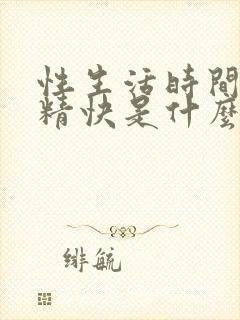 性生活時間
精快是什麼
緋毓